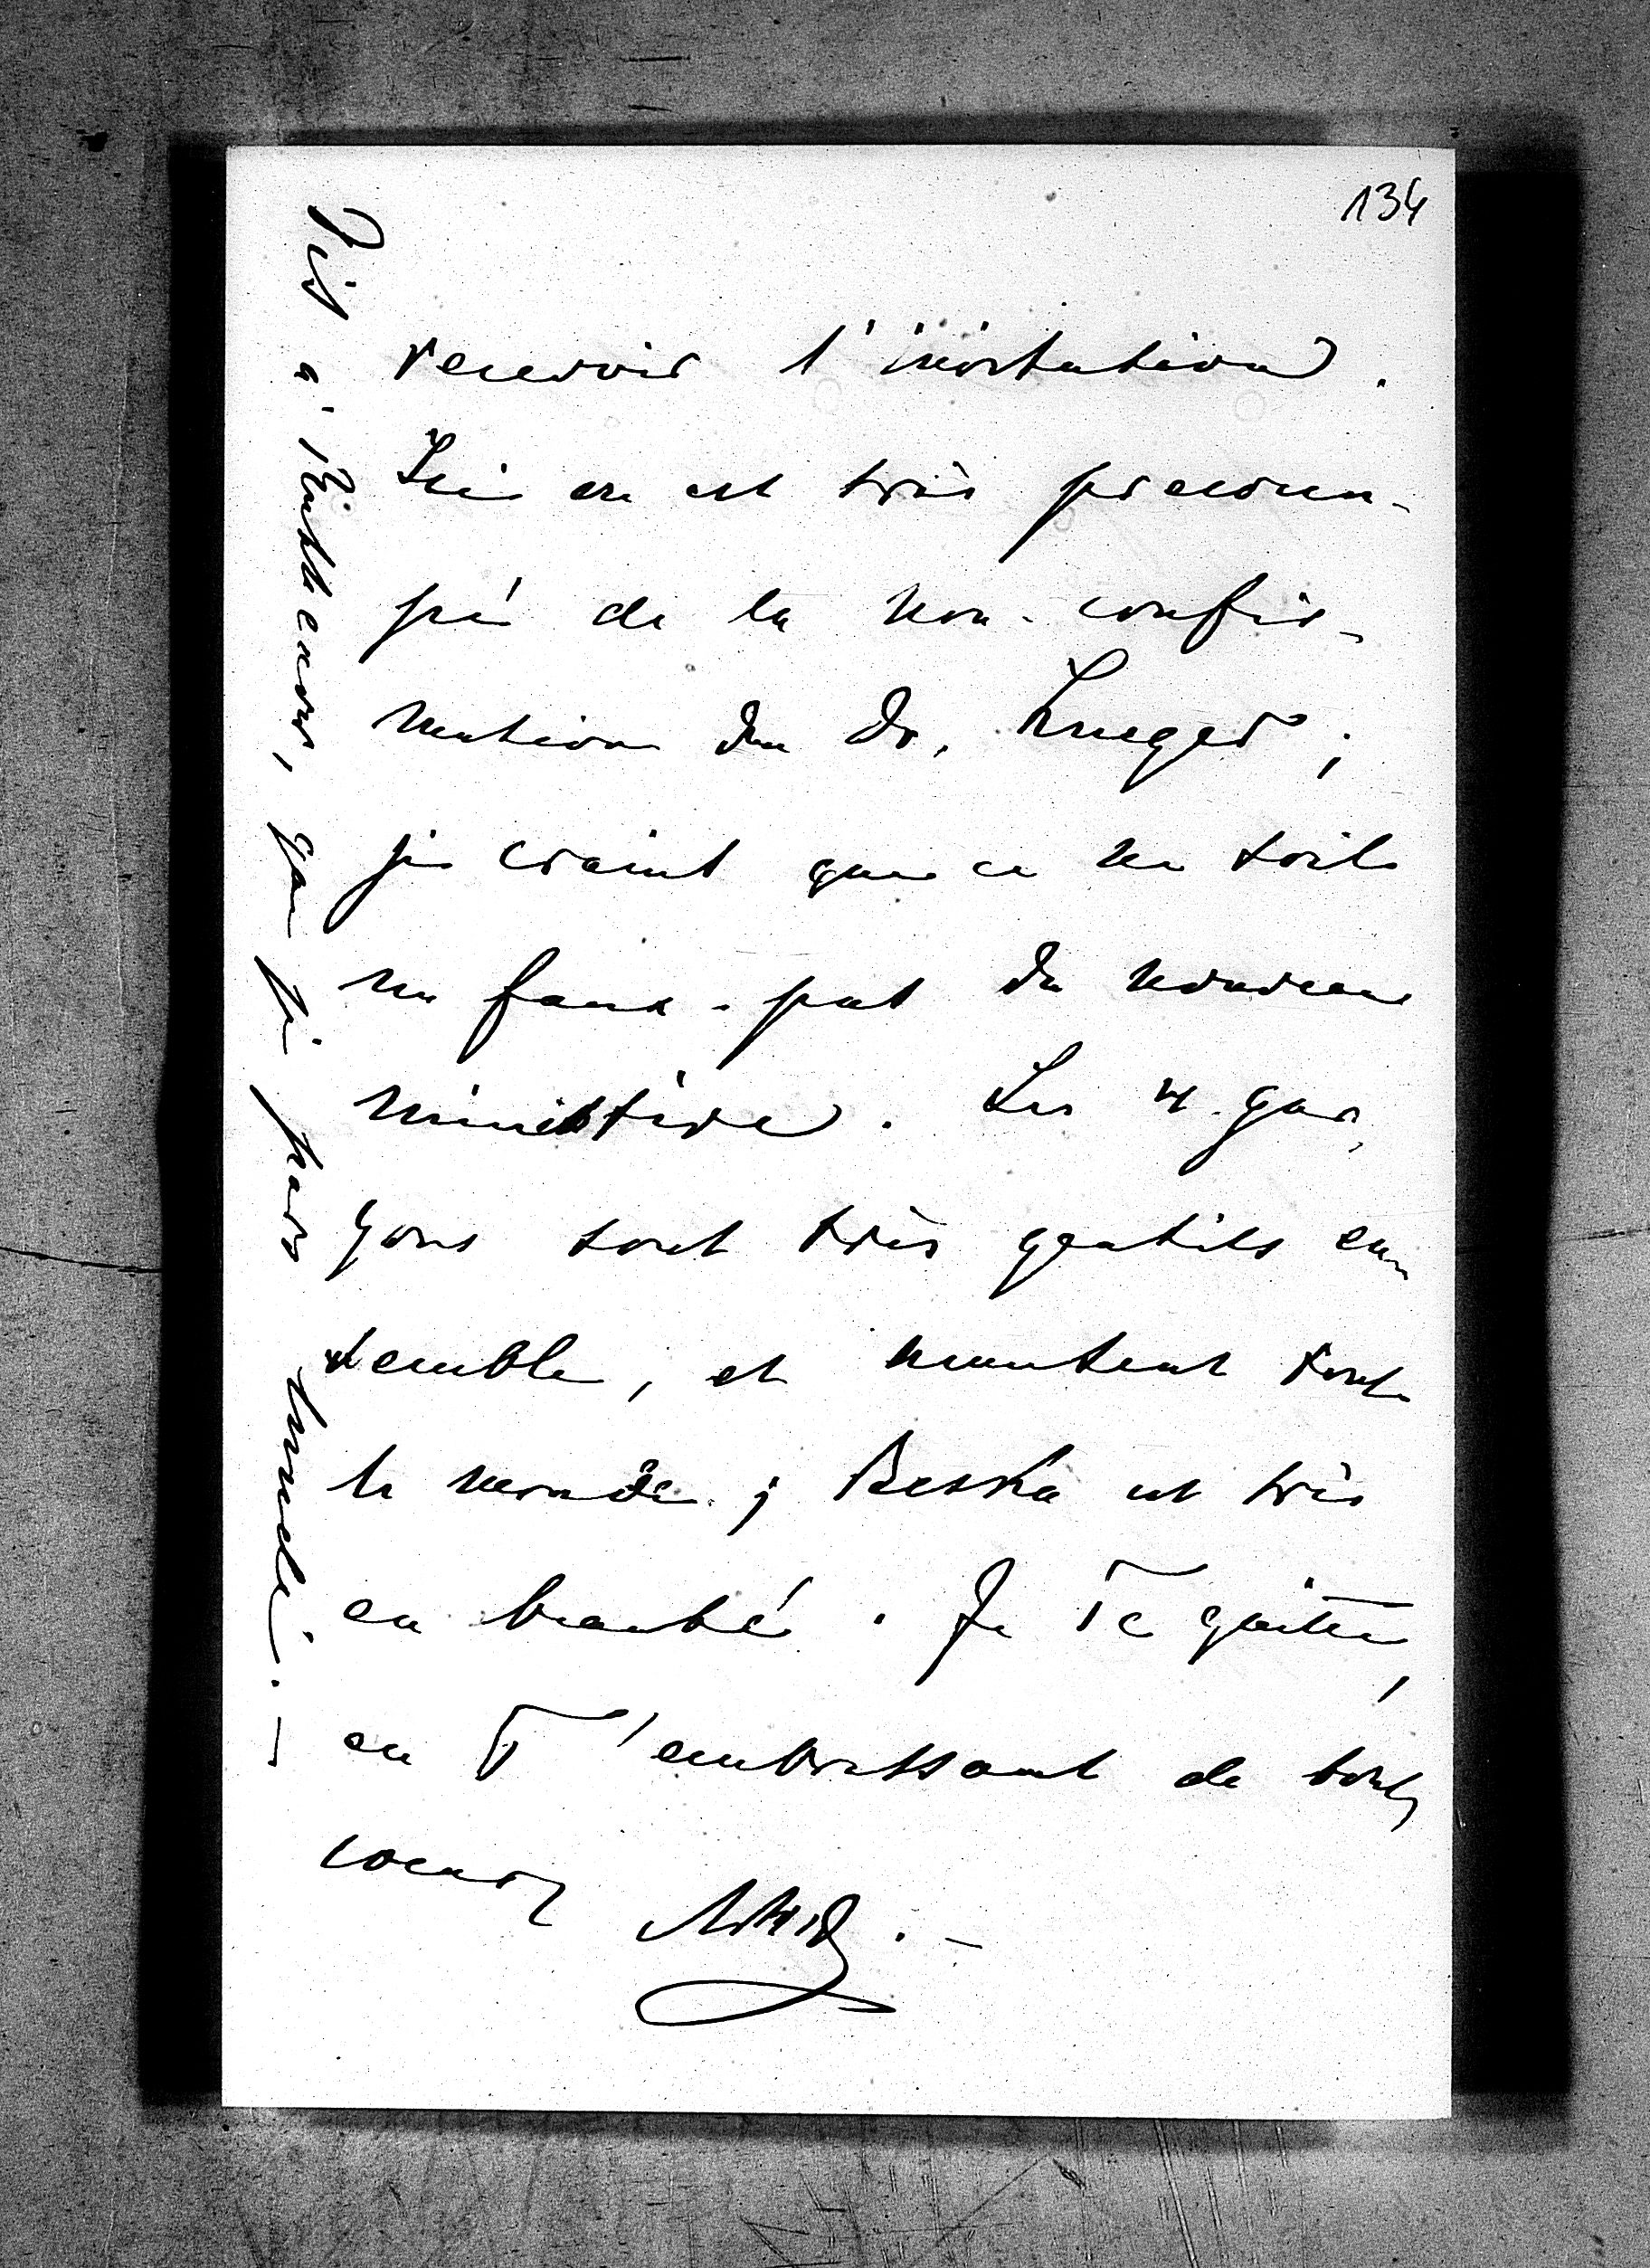 134
recevoir l'invitation.
Ici on est très preoccu-
pé de la non-confir-
mation du Dr. Lueger;
je craint que ce ne soit
un faux-pas du nouveau
ministère. Les 4 gar-
çons sont très gentils en-
semble, et montent tout
le monde; Beska est très
en beauté. Je Te quitte,
en T'embrassant de tout
coeur
Dis à Rubbenau, que je pars